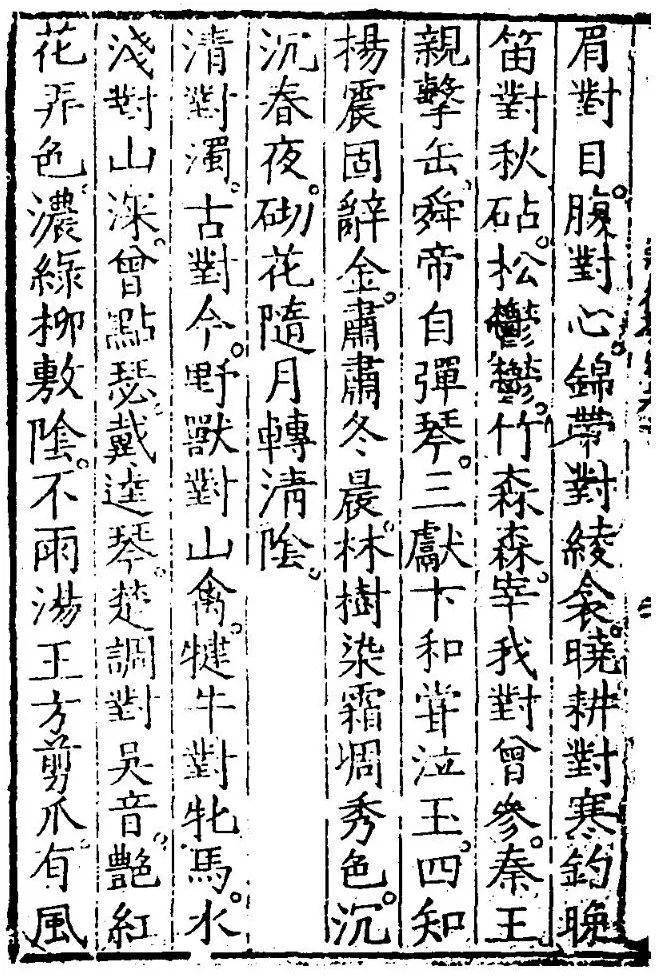 眉對目。腹對心。錦帶對綾衾。曉耕對寒釣晚
笛對秋砧。松鬱鬱。竹森森。宰我對曾參。秦王
親擊缶。舜帝自彈琴。三獻卞和甞泣玉。四知
揚震固辭金。肅肅冬晨。林樹染霜凋秀色。沉
沉春夜。砌花隨月轉清陰。
清對濁。古對今。野獸對山禽。犍牛對牝馬。水
淺對山深。曾點瑟戴逵琴。楚調對吳音。艷紅
花弄色。濃綠柳敷陰。不雨湯王方剪爪。有風